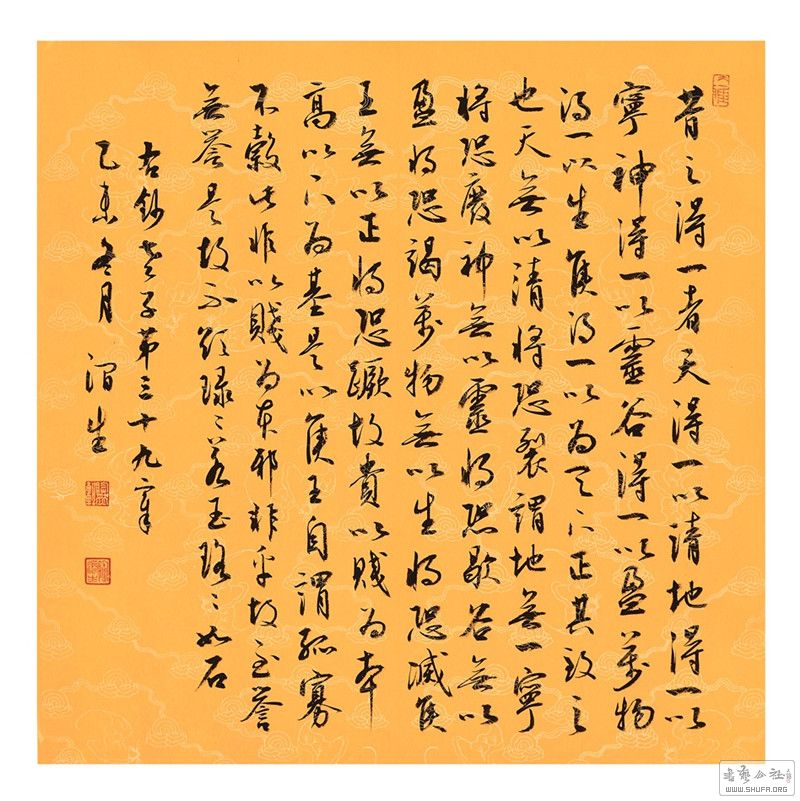 昔之得一者天得一以清地得一以
寧神得一以靈谷得一以盈萬物
得一以生侯得一以為天下正其致之
也天無以清將恐裂謂地無一寧
將恐廢神無以靈將恐歇谷無以
盈將恐竭萬物無以生將恐滅侯
王無以正將恐蹶故貴以賤為本
高以下為基是以侯王自謂孤寡
不穀此非以賤為本邪非乎故至譽
無譽是故不欲琭〻若玉珞〻如石
右鈔老子第三十九章
乙未冬月 渭生
書藝公社
WWW.SHUFA.ORG